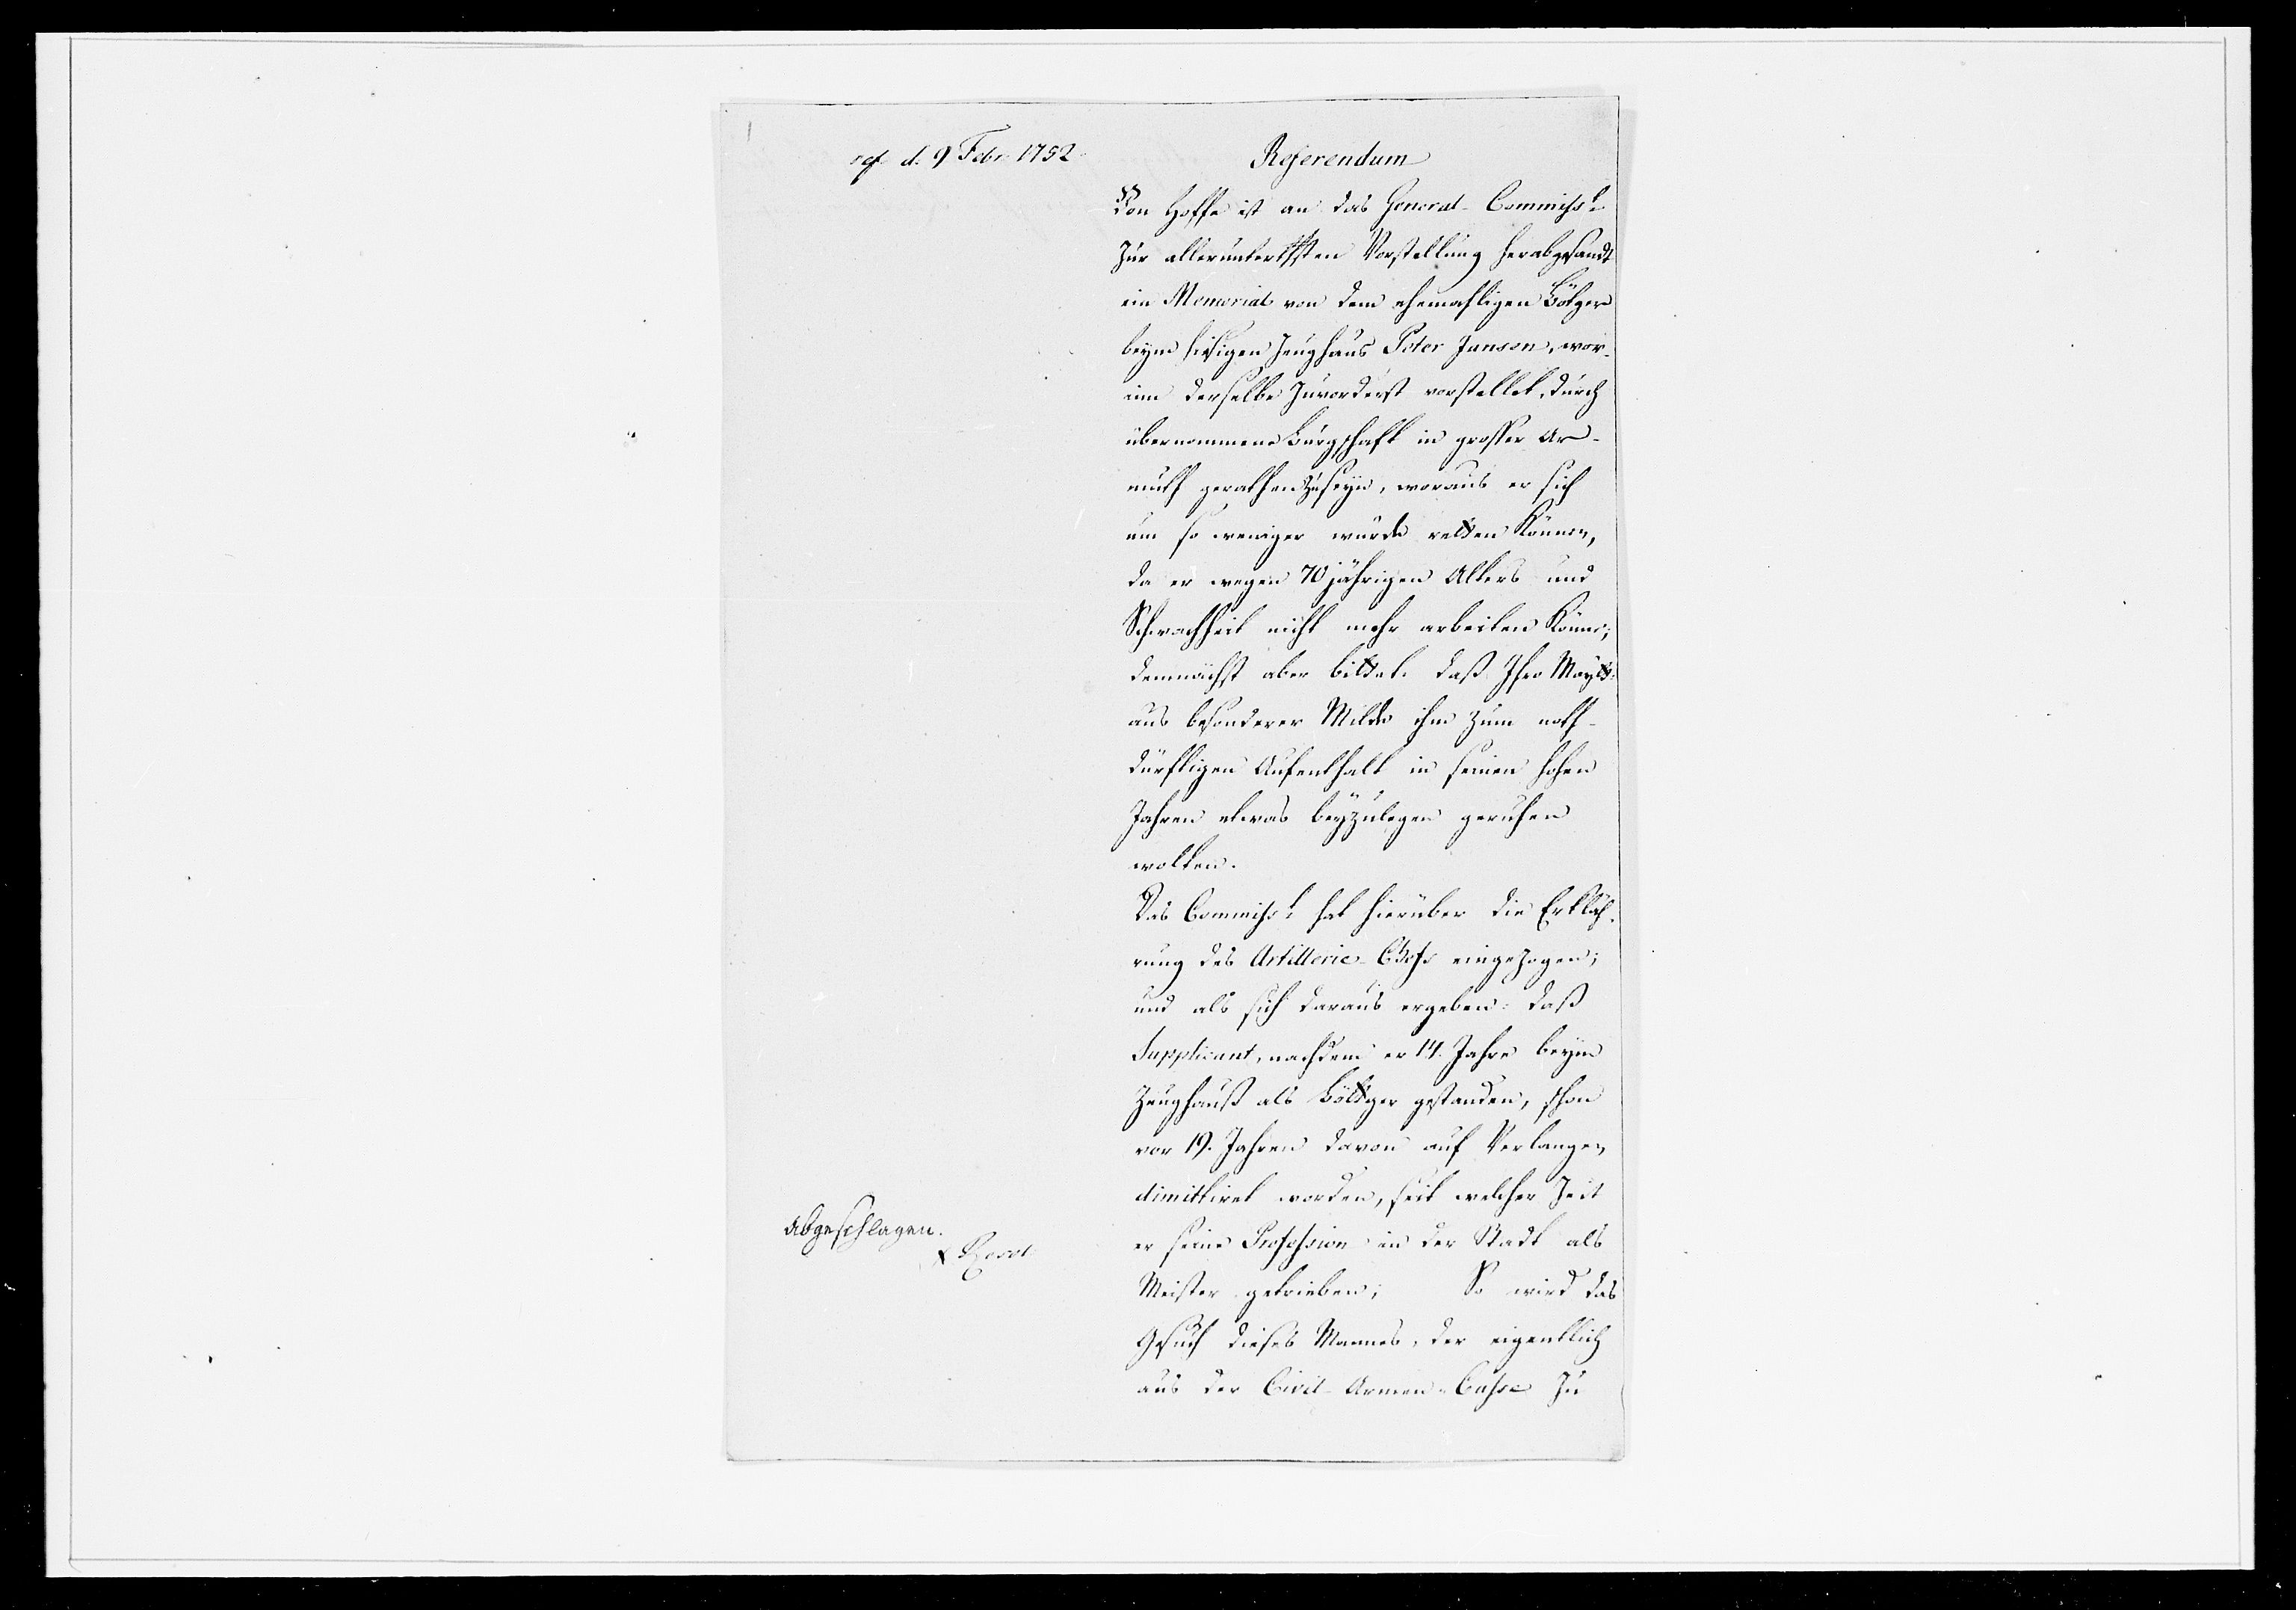 ref d. 9 Febr. 1752.
Referendum
Von Hoffe ist an das General-Commiss.t
zur alleruntertsten Vorstellung herabgesandt
ein Memorial von dem ehemahligen Bötger
beym hiesigen Zeughaus Peter Jansen, wor-
inn derselbe zuvorderst vorstellet, durch
übernommene Bürgschafft in grosser Ar-
muth gerathen zu seyn, woraus er sich
um so weniger würde retten können,
da er wegen 70 jährigen Alters und
Schwachheit nicht mehr arbeiten könne;
demnächst aber bittet. daß Ihro Maytt:
aus besonderer Milde ihm zum noth-
dürfftigen Aufenthalt in seinen hohen
Jahren etwas beyzulegen geruhen
wolten.
Das Commiss.t hat hierüber die Erkläh-
rung des Artillerie-Chefs eingezogen;
und als sich daraus ergeben: daß
Supplicant, nachdem er 14. Jahre beym
Zeughauß als Böttger gestanden, schon
vor 19. Jahren davon auf Verlangen
dimittiret worden, seit welcher Zeit
er seine Profession in der Stadt als
Meister getrieben; So wird das
Gesuch dieses Mannes, der eigentlich
aus der Civil-Armen-Casse zu
abgeschlagen.